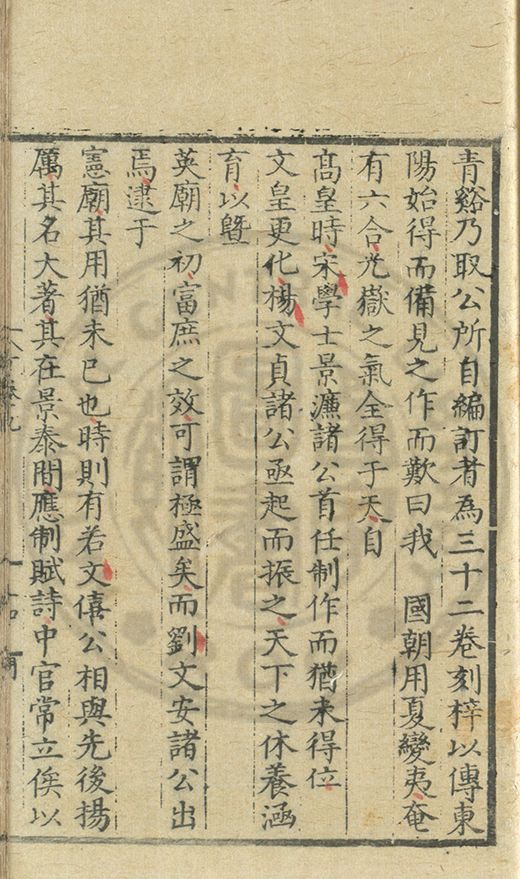 青谿乃取公所自編訂者為三十二卷刻梓以傳東
陽始得而備見之作而歎曰我　國朝用夏變夷奄
有六合光嶽之氣全得于天自
高皇時宋學士景濂諸公首任制作而猶未得位
文皇更化楊文貞諸公亟起而振之天下之休養涵
育以曁
英廟之初富庶之效可謂極盛矣而劉文安諸公出
焉逮于
憲廟其用猶未已也時則有若文僖公相與先後揚
厲其名大著其在景泰間應制賦詩中官常立俟以